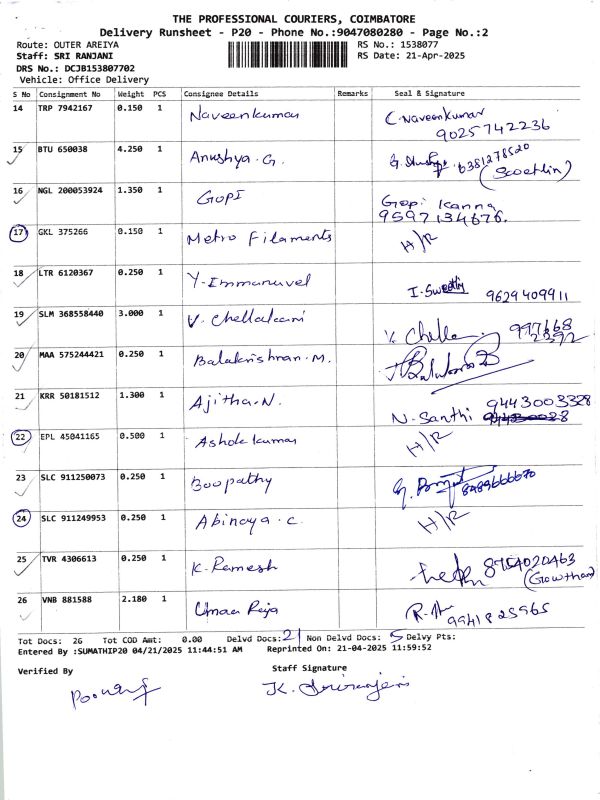 THE PROFESSIONAL COURIERS, COIMBATORE
Delivery Runsheet - P20 - Phone No.:9047080280 - Page No.:2
Route: OUTER AREIYA
RS No.: 1538077
Staff: SRI RANJANI
RS Date: 21-Apr-2025
DRS No.: DCJB153807702
Vehicle: Office Delivery
S No Consignment No Weight PCS Consignee Details Remarks Seal & Signature
14 TRP 7942167 0.150 1 Naveenkumar C.Naveenkumar
9025742236
15 BTU 650038 4.250 1 Anushya.G. 6381278520
16 NGL 200053924 1.350 1 GOPI Gopi Kanna
9597134676.
17 GKL 375266 0.150 1 Metro Filaments H/R
18 LTR 6120367 0.250 1 Y-Immanuvel I-Sweetlin 9629409911
19 SLM 368558440 3.000 1 V. Chella
20 MAA 575244421 0.250 1 Balakrishnan.M.
21 KRR 50181512 1.300 1 Ajitha.N. 9443003328
N.Santhi
22 EPL 45041165 0.500 1 Ashok kumar H/R
23 SLC 911250073 0.250 1 Boopathy 8489666670
24 SLC 911249953 0.250 1 Abinaya.c. H/R
25 TVR 4306613 0.250 1 K.Ramesh 8754020463
(Gowtham)
26 VNB 881588 2.180 1 Umaa Raja
9941825965
Tot Docs: 26 Tot COD Amt: 0.00 Delvd Docs: 21 Non Delvd Docs: 5 Delvy Pts:
Entered By :SUMATHIP20 04/21/2025 11:44:51 AM Reprinted On: 21-04-2025 11:59:52
Verified By Staff Signature
K. Sriranjani